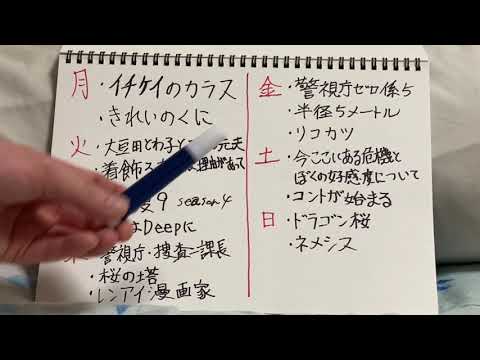 月 ・イチケイのカラス
・きれいのくに
火 ・大豆田とわ子と 元夫
・着飾る 理由があって
9 season4
はDeepに
・警視庁・捜査二課長
・桜の塔
・レンアイ漫画家
金 ・警視庁ゼロ係5
・半径5メートル
・リコカツ
土 ・今ここにある危機と
ぼくの好感度について
・コントが始まる
日 ・ドラゴン桜
・ネメシス